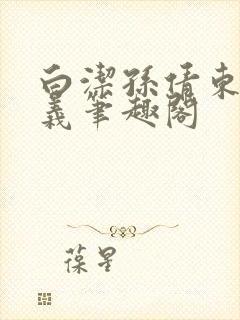 白潔孫倩東
義筆趣閣
葆星